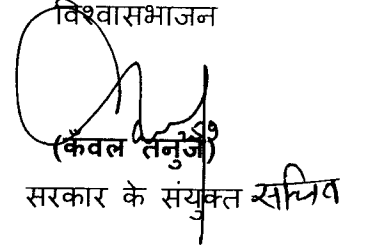 विश्वासभाजन
(कँवल तनुज)
सरकार के संयुक्त सचिव